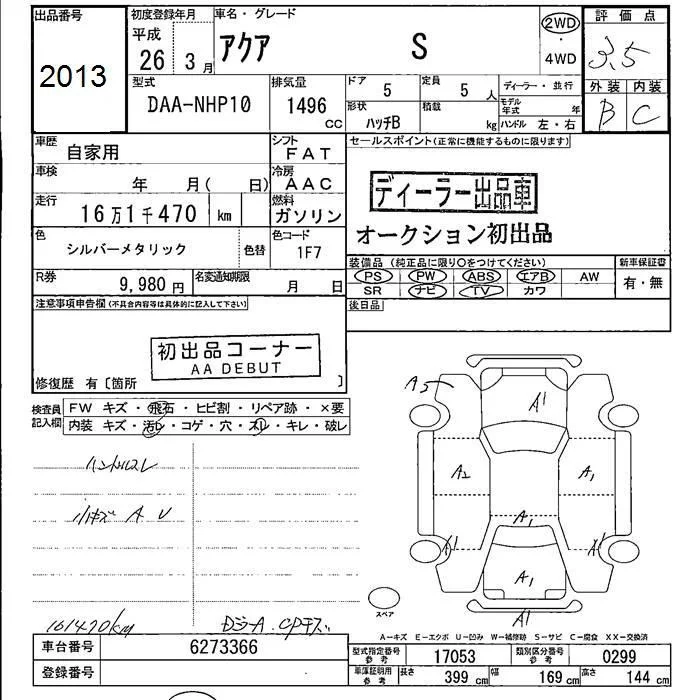 出品番号 初度登録年月 車名・グレード 2WD 評価点
2013 平成 26 3月 アクア S 4WD 3.5
型式 排気量 ドア 5 定員 5人 ディーラー・並行 外装 内装
DAA-NHP10 1496 CC 形状 ハッチB 積載 kg モデル年式 年 B C
ハンドル 左・右
車歴 自家用 シフト FAT セールスポイント(正常に機能するものに限ります)
車検 年 月( 日) 冷房 AAC ディーラー出品車
走行 16万1千470 km 燃料 ガソリン オークション初出品
色 シルバーメタリック 色替 色コード 1F7
装備品 (純正品に限り○をつけてください) 新車保証書
R券 9,980円 名変通知期限 月 日 PS PW ABS エアB AW 有・無
SR ナビ TV カワ
注意事項申告欄(不具合内容等は具体的に記入して下さい) 後日品
初出品コーナー
AA DEBUT
修復歴 有〔箇所 〕
検査員記入欄 FW キズ・飛石・ヒビ割・リペア跡・×要
内装 キズ・汚レ・コゲ・穴・スレ・キレ・破レ
ハンドルスレ
小キズ A U
A1
A2
A1
A1
A1
A1
スペア
161470km
A−キズ E−エクボ U−凹み W−補修跡 S−サビ C−腐食 XX−交換済
車台番号 6273366 型式指定番号 参考 17053 類別区分番号 参考 0299
登録番号 車庫証明用 参考 長さ 399 cm 幅 169 cm 高さ 144 cm